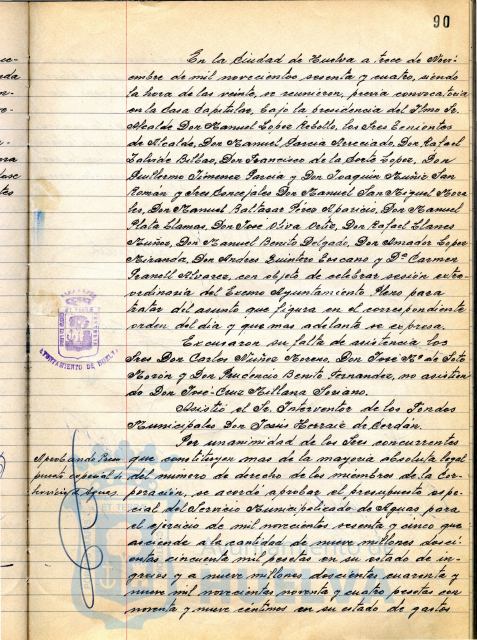 90
En la Ciudad de Huelva a trece de Novi-
embre de mil novecientos sesenta y cuatro, siendo
la hora de las veinte, se reunieron, previa convocatoria
en la Casa Capitular, bajo la presidencia del Iltmo Sr.
Alcalde Don Manuel Lopez Rebollo, los Sres Tenientes
de Alcalde, Don Manuel Garcia Arreciado, Don Rafael
Bilbao, Don Francisco de la Corte Lopez, Don
Guillermo Jimenez Garcia y Don Joaquin Muñiz San
Román y Sres Concejales Don Manuel San Miguel Mora-
les, Don Manuel Baltasar Pérez Aparicio, Don Manuel
Plata Llamas, Don José Oliva Ortiz, Don Rafael Llanes
Muñoz, Don Manuel Benito Delgado, Don Amador Lopez
Miranda, Don Andres Quintero Boscano y Dª Carmen
Alvarez, con objeto de celebrar sesión extra-
ordinaria del Excmo Ayuntamiento Pleno para
tratar del asunto que figura en el correspondiente
orden del día y que mas adelante se expresa.
Excusaron su falta de asistencia los
Sres Don Carlos Nuñez Moreno, Don José Mª de Soto
Morón y Don Prudencio Benito Fernandez, no asistien
do Don José-Cruz Millana Soriano.
AYUNTAMIENTO DE HUELVA
Asistió el Sr. Interventor de los Fondos
Municipales Don Jesús Herraiz de Cerdán.
Por unanimidad de los Sres concurrentes
que constituyen mas de la mayoria absoluta legal
del numero de derecho de los miembros de la Cor-
poración, se acordó aprobar el presupuesto espe-
cial del Servicio Municipalizado de Aguas para
el ejercicio de mil novecientos sesenta y cinco que
asciende a la cantidad de nueve millones dosci-
entas cincuenta mil pesetas en su estado de in-
gresos y a nueve millones doscientas cuarenta y
nueve mil novecientas noventa y cuatro pesetas con
noventa y nueve centimos en su estado de gastos
Aprobando Presu
puesto especial de
Servicio de Aguas.
Ayuntamiento de